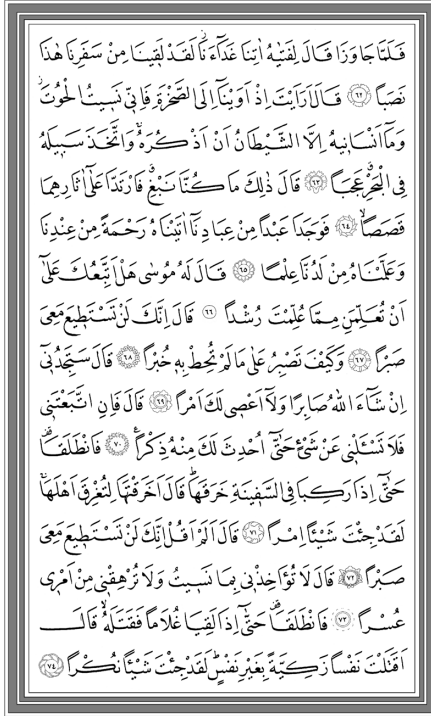 فَلَمَّا جَاوَزَا قَالَ لِفَتٰيهُ اٰتِنَا غَدَٓاءَنَاۘ لَقَدْ لَق۪ينَا مِنْ سَفَرِنَا هٰذَا
نَصَباً ﴿٦٢﴾ قَالَ اَرَاَيْتَ اِذْ اَوَيْنَٓا اِلَى الصَّخْرَةِ فَاِنّ۪ي نَس۪يتُ الْحُوتَۘ
وَمَٓا اَنْسَان۪يهُ اِلَّا الشَّيْطَانُ اَنْ اَذْكُرَهُۚ وَاتَّخَذَ سَب۪يلَهُ
فِي الْبَحْرِۗ عَجَباً ﴿٦٣﴾ قَالَ ذٰلِكَ مَا كُنَّا نَبْغِۗ فَارْتَدَّا عَلٰٓى اٰثَارِهِمَا
قَصَصاًۙ ﴿٦٤﴾ فَوَجَدَا عَبْداً مِنْ عِبَادِنَٓا اٰتَيْنَاهُ رَحْمَةً مِنْ عِنْدِنَا
وَعَلَّمْنَاهُ مِنْ لَدُنَّا عِلْماً ﴿٦٥﴾ قَالَ لَهُ مُوسٰى هَلْ اَتَّبِعُكَ عَلٰٓى
اَنْ تُعَلِّمَنِ مِمَّا عُلِّمْتَ رُشْداً ﴿٦٦﴾ قَالَ اِنَّكَ لَنْ تَسْتَط۪يعَ مَعِيَ
صَبْراً ﴿٦٧﴾ وَكَيْفَ تَصْبِرُ عَلٰى مَا لَمْ تُحِطْ بِه۪ خُبْراً ﴿٦٨﴾ قَالَ سَتَجِدُن۪ٓي
اِنْ شَٓاءَ اللّٰهُ صَابِراً وَلَٓا اَعْص۪ي لَكَ اَمْراً ﴿٦٩﴾ قَالَ فَاِنِ اتَّبَعْتَن۪ي
فَلَا تَسْـَٔلْن۪ي عَنْ شَيْءٍ حَتّٰٓى اُحْدِثَ لَكَ مِنْهُ ذِكْراً۟ ﴿٧٠﴾ فَانْطَلَقَا۠
حَتّٰٓى اِذَا رَكِبَا فِي السَّف۪ينَةِ خَرَقَهَاۜ قَالَ اَخَرَقْتَهَا لِتُغْرِقَ اَهْلَهَاۚ
لَقَدْ جِئْتَ شَيْـٔاً اِمْراً ﴿٧١﴾ قَالَ اَلَمْ اَقُلْ اِنَّكَ لَنْ تَسْتَط۪يعَ مَعِيَ
صَبْراً ﴿٧٢﴾ قَالَ لَا تُؤَاخِذْن۪ي بِمَا نَس۪يتُ وَلَا تُرْهِقْن۪ي مِنْ اَمْر۪ي
عُسْراً ﴿٧٣﴾ فَانْطَلَقَا۠ حَتّٰٓى اِذَا لَقِيَا غُلَاماً فَقَتَلَهُۙ قَالَ
اَقَتَلْتَ نَفْساً زَكِيَّةً بِغَيْرِ نَفْسٍۜ لَقَدْ جِئْتَ شَيْـٔاً نُكْراً ﴿٧٤﴾